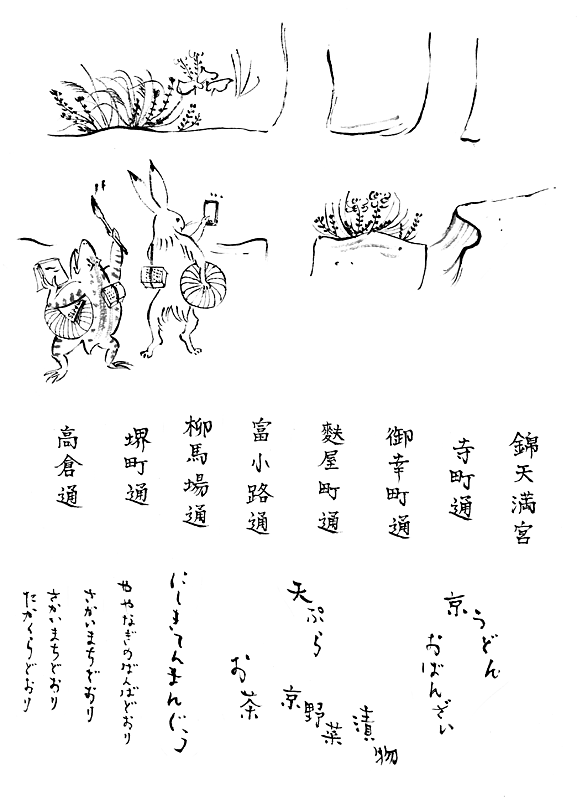 錦天満宮
寺町通
御幸町通
麩屋町通
富小路通
柳馬場通
堺町通
高倉通
京うどん
おばんざい
天ぷら
京野菜漬物
お茶
にしきてんまんぐう
ややなぎのばんばどおり
さかいまちどおり
さかいまちどおり
たかくらどおり